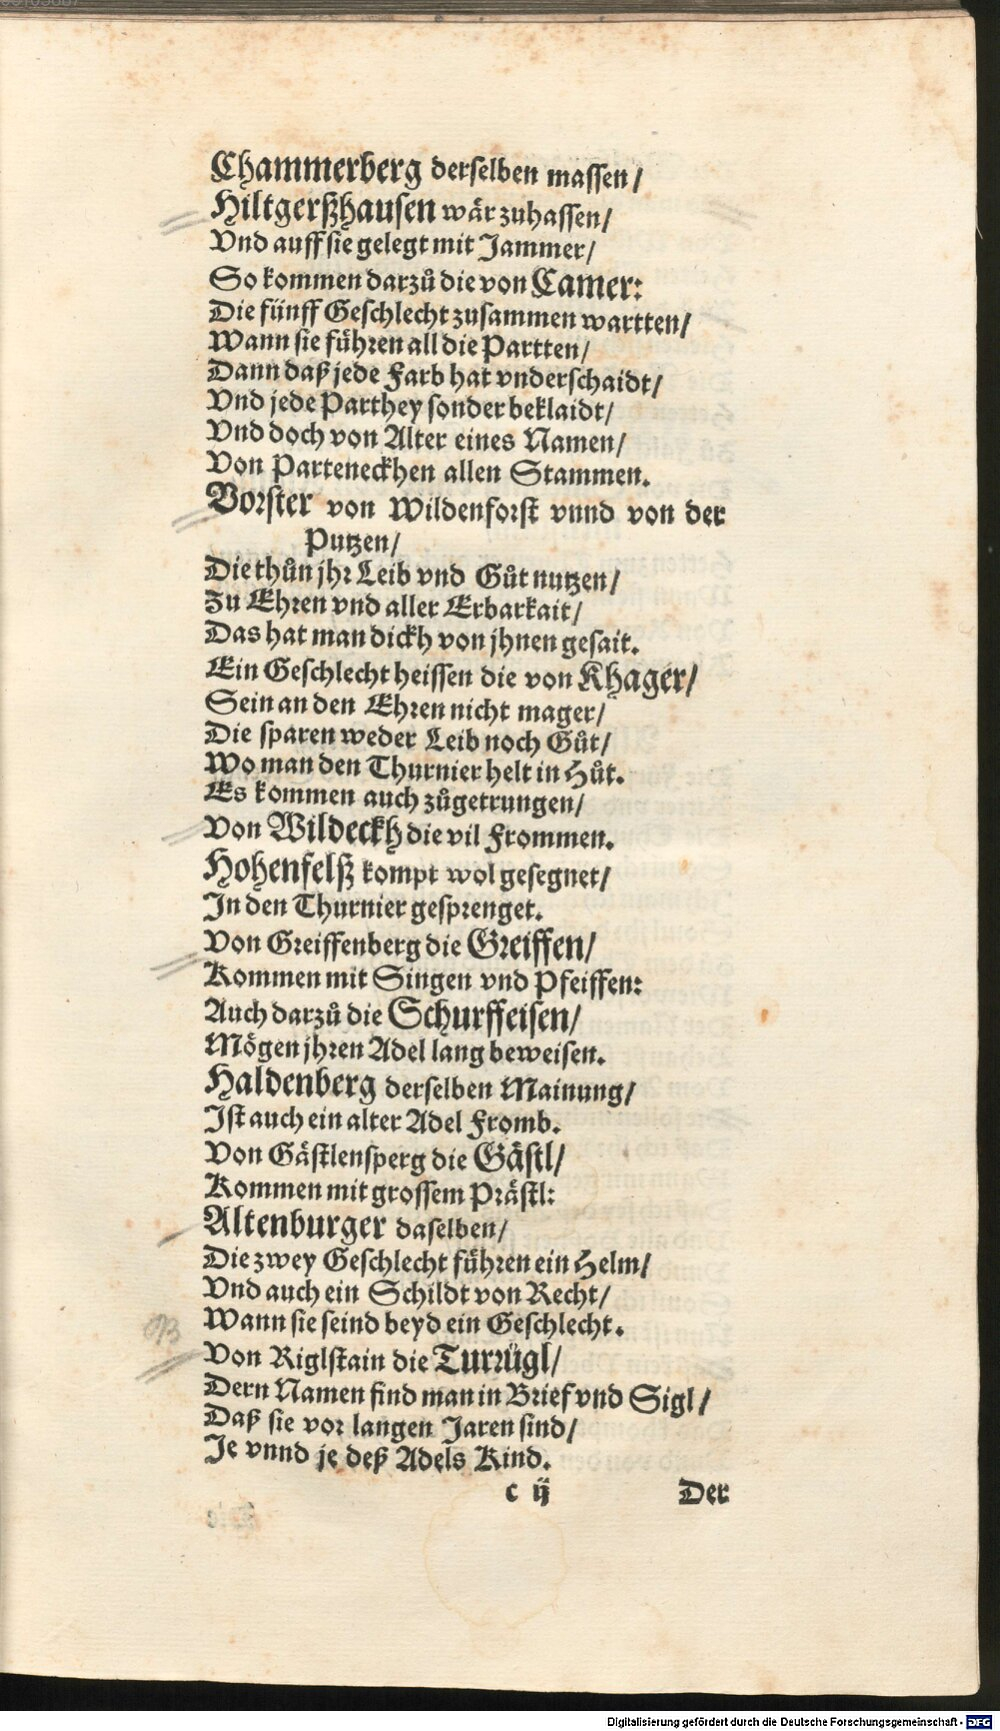 Chammerberg derselben massen/
Hiltgerßhausen wär zuhassen/
Vnd auff sie gelegt mit Jammer/
So kommen darzů die von Camer:
Die fünff Geschlecht zusammen wartten/
Wann sie führen all die Partten/
Dann daß jede Farb hat vnderschaidt/
Vnd jede Parthey sonder beklaidt/
Vnd doch von Alter eines Namen/
Von Parteneckhen allen Stammen.
Vorster von Wildenforst vnnd von der
Putzen/
Die thůn jhr Leib vnd Gůt nutzen/
Zu Ehren vnd aller Erbarkait/
Das hat man dickh von jhnen gesait.
Ein Geschlecht heissen die von Khager/
Sein an den Ehren nicht mager/
Die sparen weder Leib noch Gůt/
Wo man den Thurnier helt in Hůt.
Es kommen auch zůgetrungen/
Von Wildeckh die vil Frommen.
Hohenfelß kompt wol gesegnet/
In den Thurnier gesprenget.
Von Greiffenberg die Greiffen/
Kommen mit Singen vnd Pfeiffen:
Auch darzů die Schurffeisen/
Mögen jhren Adel lang beweisen.
Haldenberg derselben Mainung/
Ist auch ein alter Adel Fromb.
Von Gästlensperg die Gästl/
Kommen mit grossem Prästl:
Altenburger daselben/
Die zwey Geschlecht führen ein Helm/
Vnd auch ein Schildt von Recht/
Wann sie seind beyd ein Geschlecht.
Von Riglstain die Turrügl/
Dern Namen find man in Brief vnd Sigl/
Daß sie vor langen Jaren sind/
Je vnnd je deß Adels Kind.
c ij Der
Digitalisierung gefördert durch die Deutsche Forschungsgemeinschaft - DFG